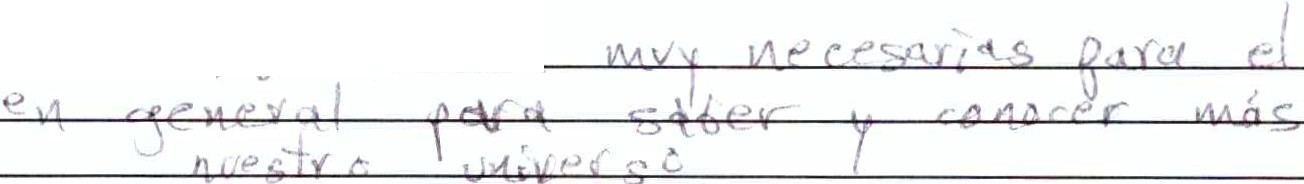 muy necesarias para el
en general para saber y conocer más
nuestro universo